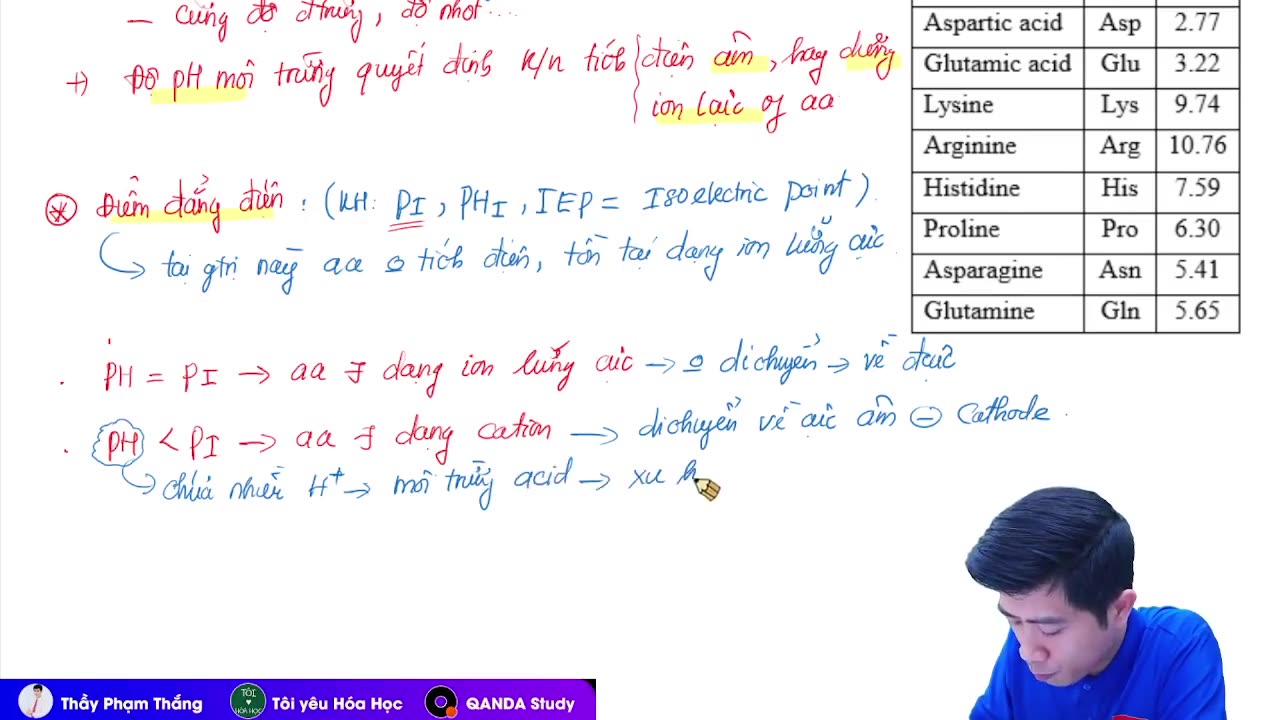 – cùng đổ đ trường, độ nhớt...
+) Độ pH môi trường quyết định k/n tích điện âm, hay dương
ion lưỡng cực of aa
* Điểm đẳng điện : (KH: PI, PHI, IEP = Isoelectric point)
→ tại gtrị này aa o tích điện, tồn tại dạng ion lưỡng cực
. PH = PI → aa ∃ dạng ion lưỡng cực → o di chuyển → về đ cực
. PH < PI → aa ∃ dạng cation → di chuyển về cực âm ⊖ Cathode.
→ chứa nhiều H+ → môi trường acid → xu h
Aspartic acid Asp 2.77
Glutamic acid Glu 3.22
Lysine Lys 9.74
Arginine Arg 10.76
Histidine His 7.59
Proline Pro 6.30
Asparagine Asn 5.41
Glutamine Gln 5.65
Thầy Phạm Thắng
TÔI ♥ HÓA HỌC
Tôi yêu Hóa Học
QANDA Study